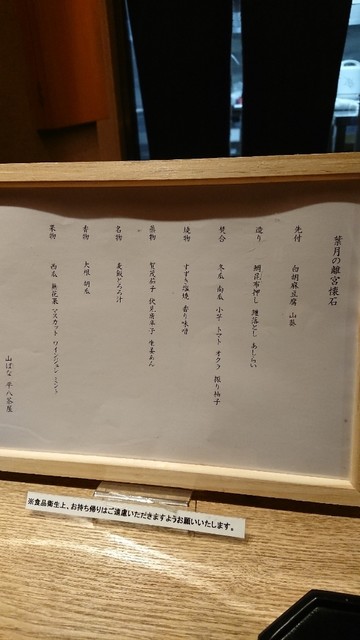 葉月の離宮懐石
先付 白胡麻豆腐 山葵
造り 鯛昆布押し 鱧落とし あしらい
焚合 冬瓜 南瓜 小芋 トマト オクラ 振り柚子
焼物 すずき塩焼 香り味噌
蒸物 賀茂茄子 伏見唐辛子 生姜あん
名物 麦飯とろろ汁
香物 大根 胡瓜
果物 西瓜 無花果 マスカット ワインジュレ ミント
山ばな 平八茶屋
※食品衛生上、お持ち帰りはご遠慮いただきますようお願いいたします。